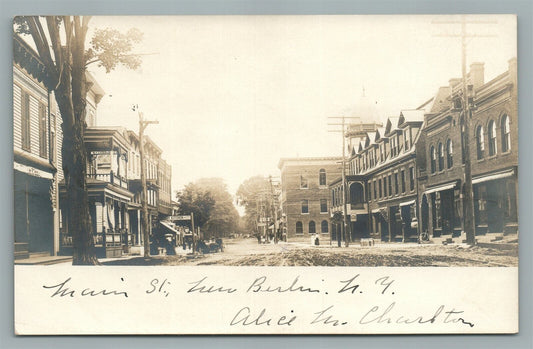 Main St., New Berlin. N. Y.
Alice M. Charlton